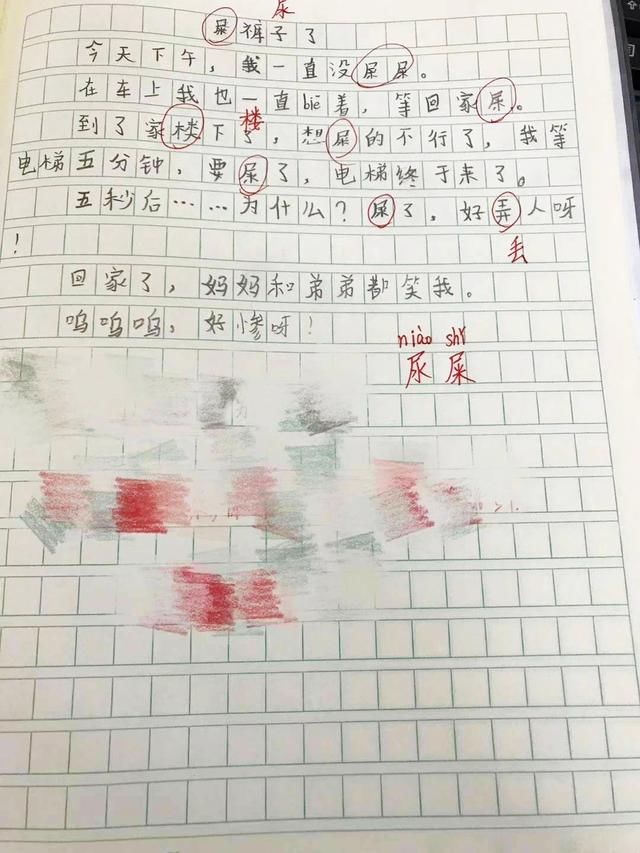 尿
屎裤子了
今天下午，我一直没屎屎。
在车上我也一直biē着，等回家屎。
楼
到了家楼下了，想屎的不行了，我等
电梯五分钟，要屎了，电梯终于来了。
五秒后……为什么？屎了，好弄人呀
！
丢
回家了，妈妈和弟弟都笑我。
呜呜呜，好惨呀！
niào shǐ
尿 屎